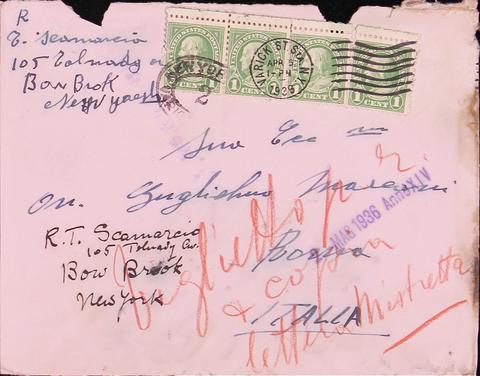 R
T. Scamarcia
105 Tolmady
Bow Brok
New york
UNITED STATES POSTAGE
1 CENT 1
1 CENT 1
1 CENT 1
1 CENT 1
VARICK ST. STA. N.Y.
APR
1-PM
1936
2
Sua Ecc
On. Guglielmo Marconi
MAG 1936 Anno XIV
Roma
ITALIA
R.T. Scamarcio
105 Tolmady Av.
Bow Brook
New York
Biglietto
& copia
lettera Mistretta